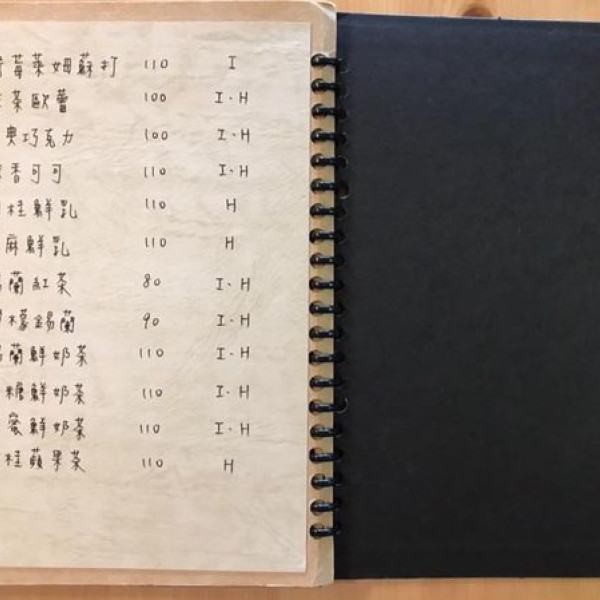 莓萊姆蘇打 110 I
茶歐蕾 100 I·H
典巧克力 100 I·H
香可可 110 I·H
桂鮮乳 110 H
麻鮮乳 110 H
蘭紅茶 80 I·H
檬錫蘭 90 I·H
蘭鮮奶茶 110 I·H
糖鮮奶茶 110 I·H
蜜鮮奶茶 110 I·H
桂蘋果茶 110 H